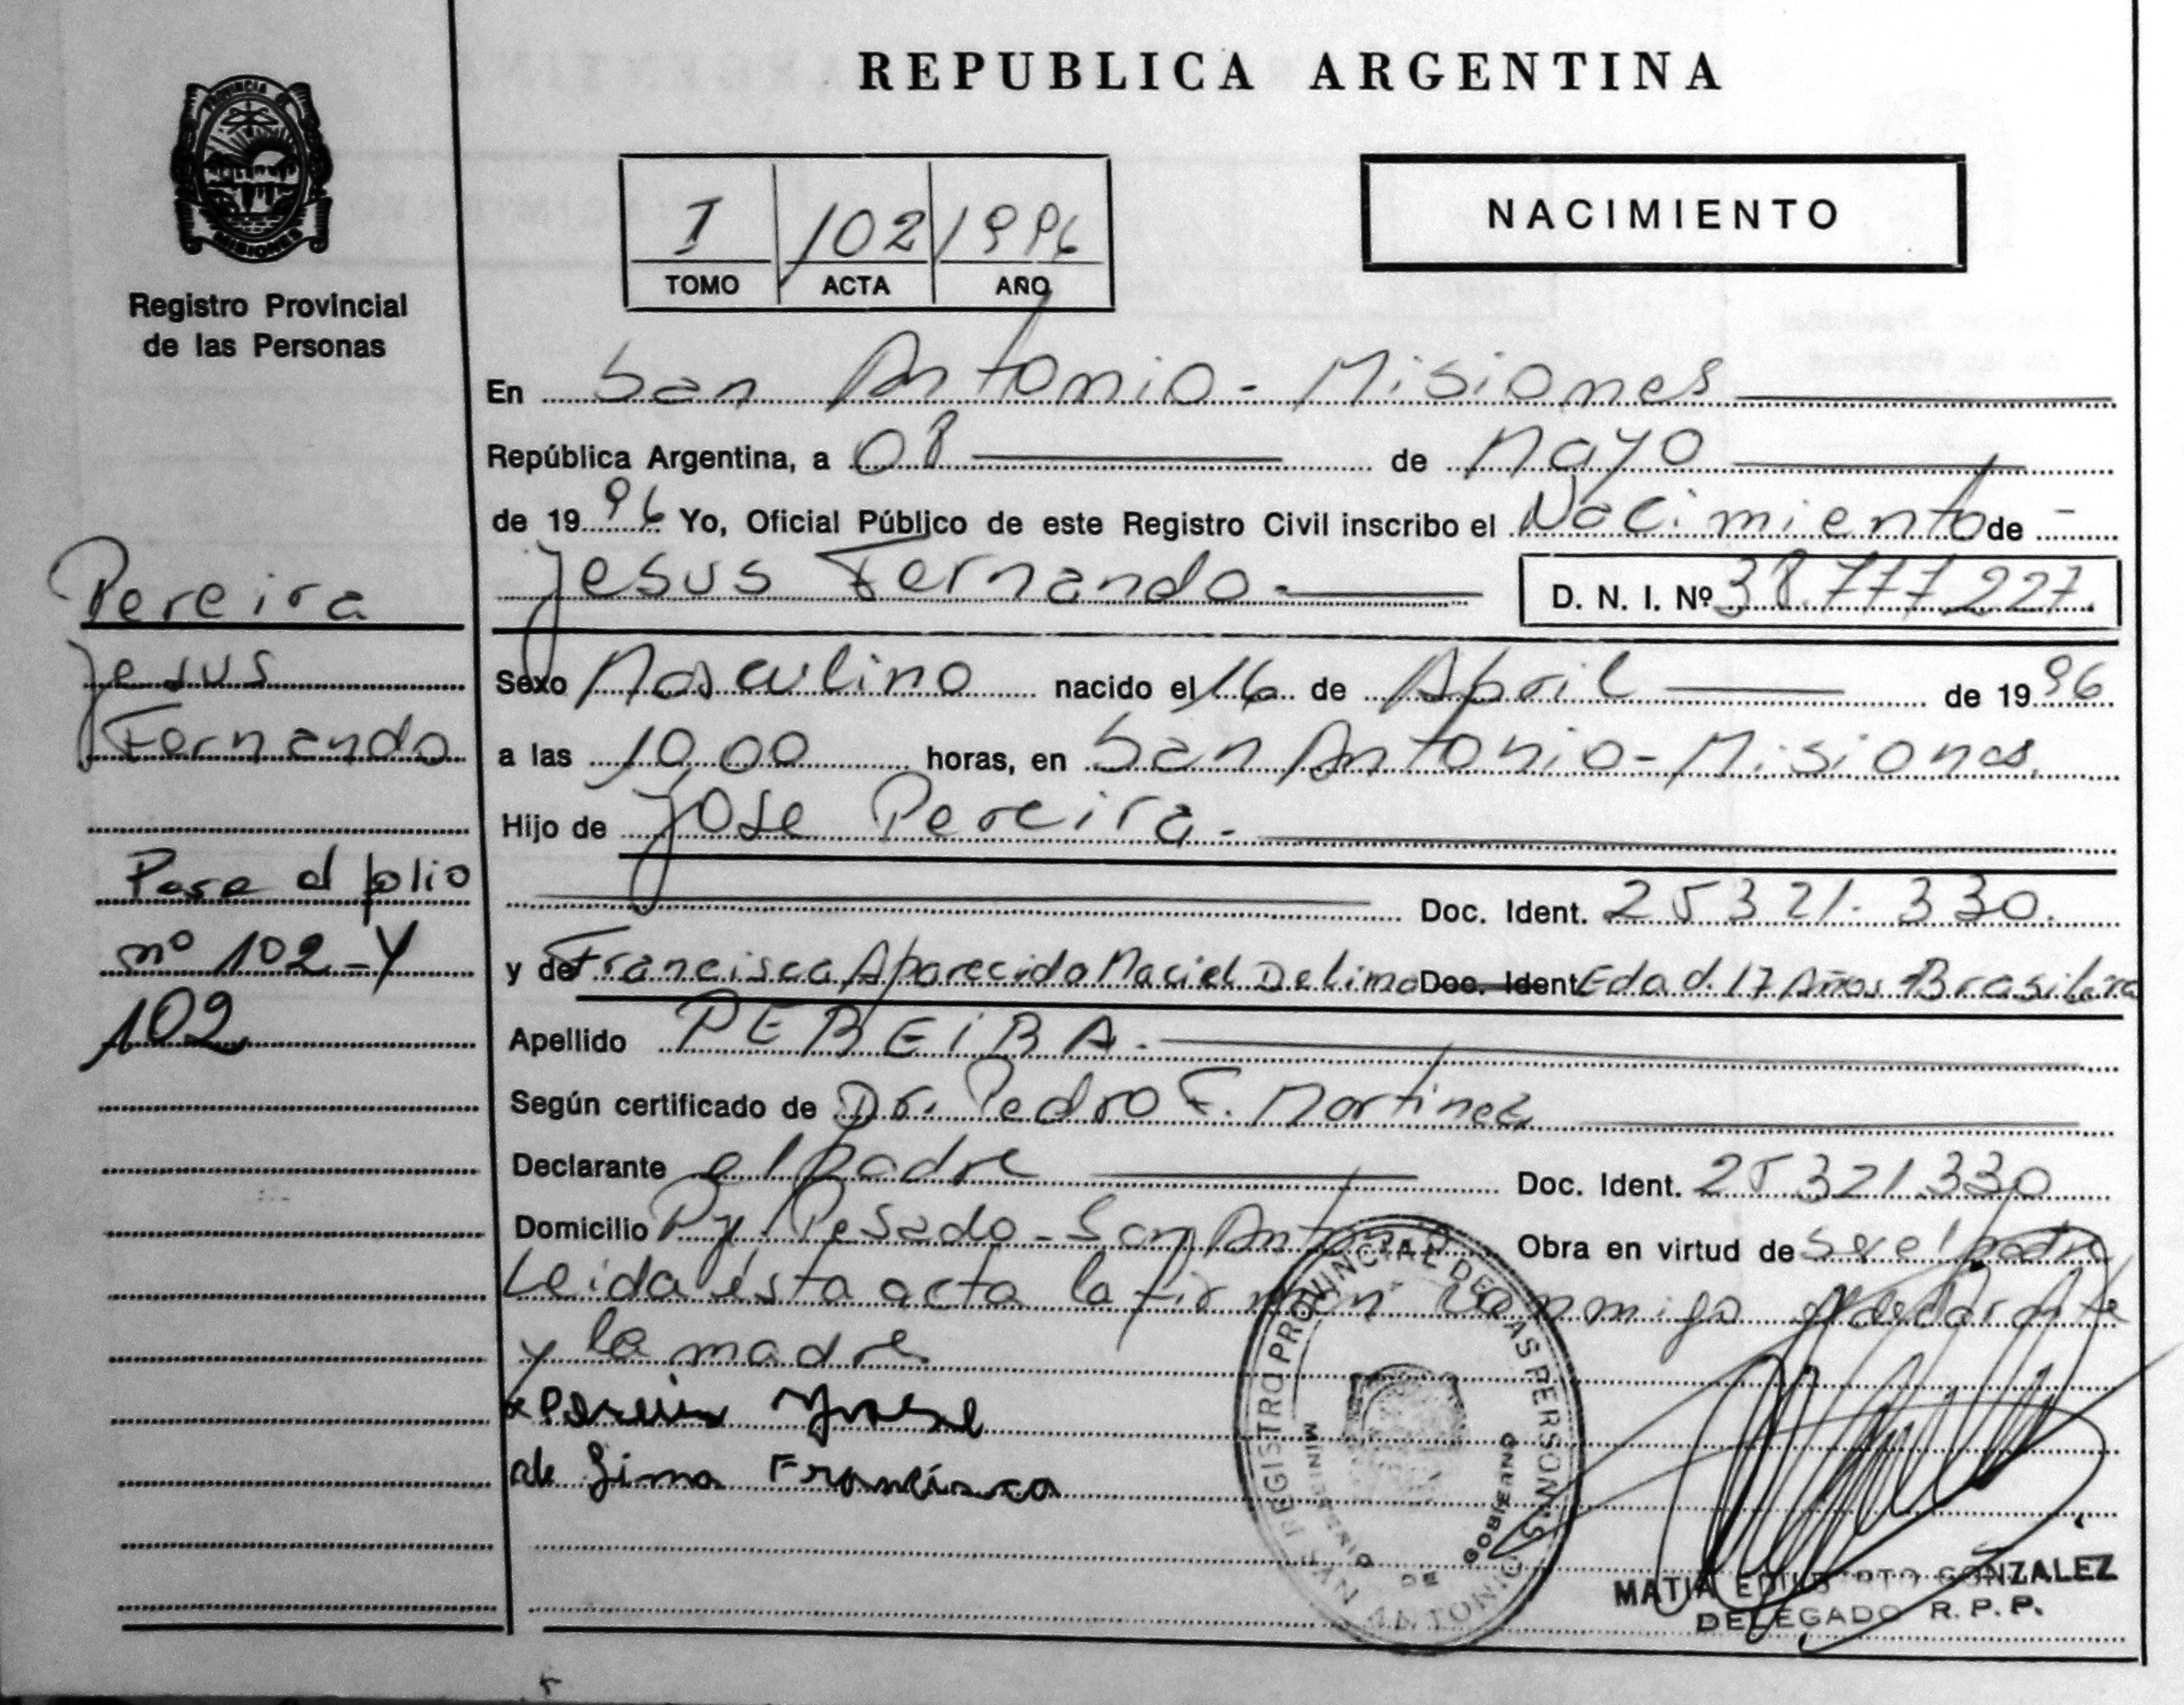 REPUBLICA ARGENTINA
PROVINCIA DE
MISIONES
Registro Provincial
de las Personas
I /102 /1996
TOMO ACTA AÑO
NACIMIENTO
En San Antonio - Misiones
República Argentina, a 08 de Mayo
de 1996 Yo, Oficial Público de este Registro Civil inscribo el Nacimiento de
Jesus Fernando - D. N. I. Nº 38.777.227.
Sexo Masculino nacido el 16 de April de 1996
a las 10,00 horas, en San Antonio - Misiones.
Hijo de Jose Pereira -
Doc. Ident. 25321.330.
y de Francisca Aparecida Maciel De lima Doc. Ident Edad. 17 Años Brasilera
Apellido PEREIRA -
Según certificado de Dr. Pedro F. Martinez
Declarante el padre Doc. Ident. 25321.330
Domicilio Py Pesado - San Antonio Obra en virtud de ser el padre
Leida ésta acta la firman conmigo el declarante
y la madre
x Pereira Jose
de Lima Francisca
Pereira
Jesus
Fernando
Pase al folio
nº 102 - Y
102
REGISTRO PROVINCIAL DE LAS PERSONAS
MINISTERIO DE GOBIERNO
SAN ANTONIO
GONZALEZ
DELEGADO R. P. P.